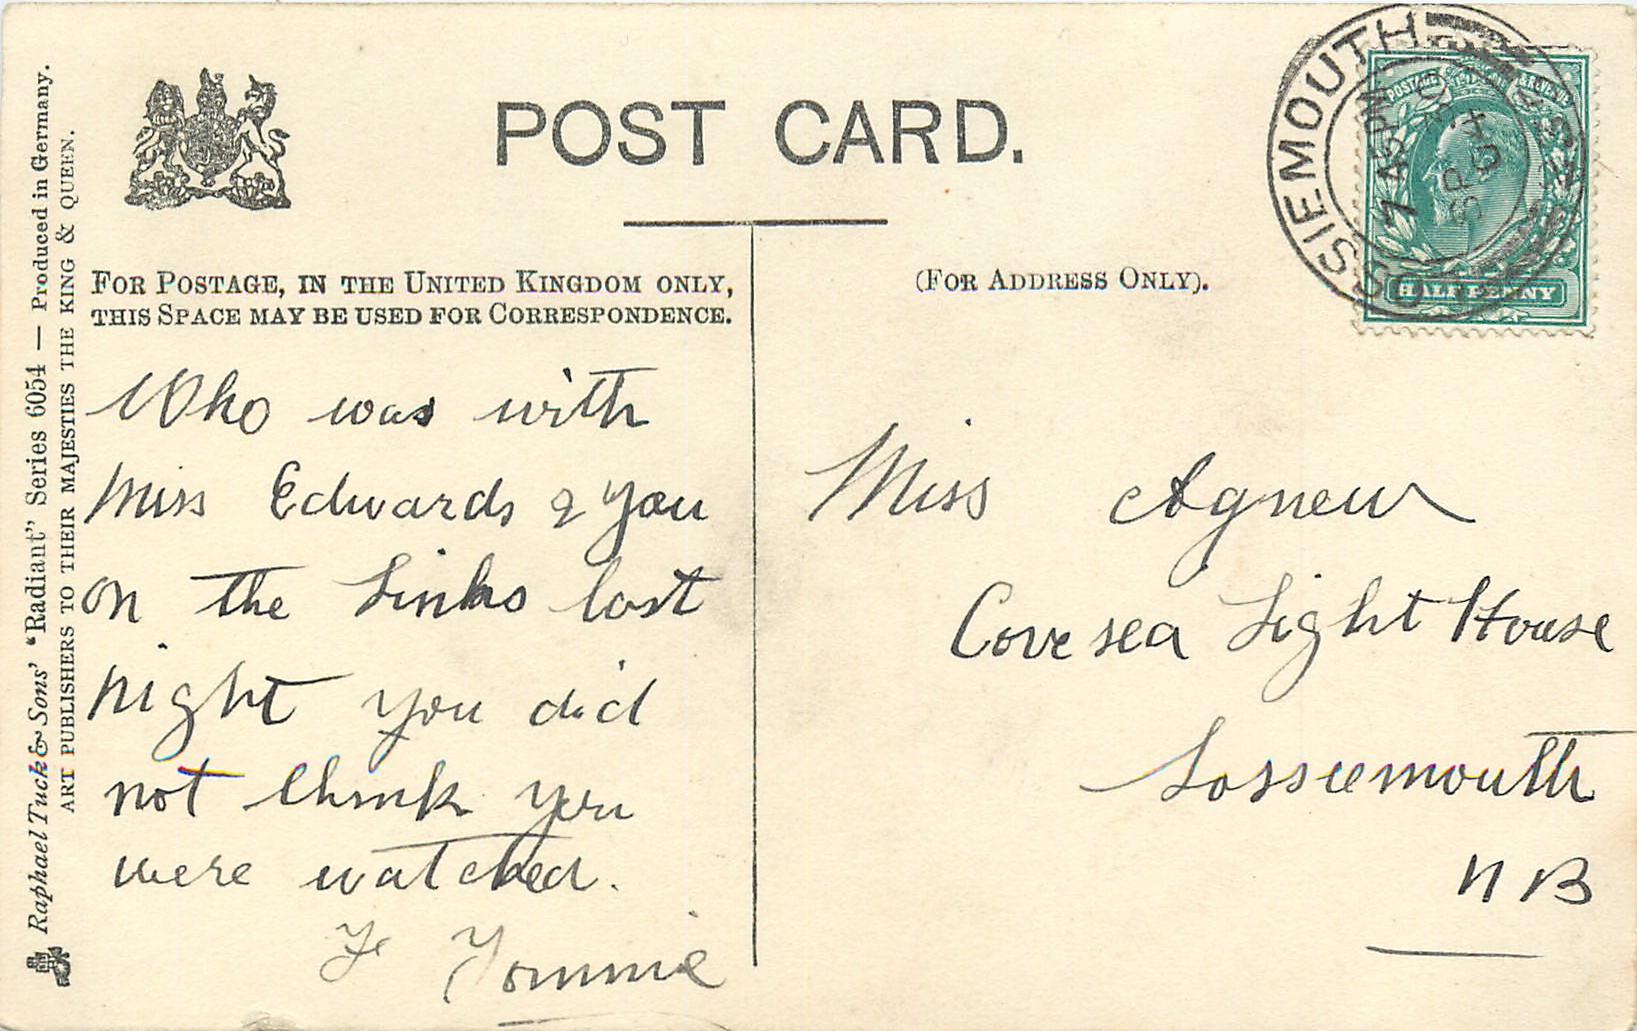 POST CARD.
FOR POSTAGE, IN THE UNITED KINGDOM ONLY,
THIS SPACE MAY BE USED FOR CORRESPONDENCE.
(FOR ADDRESS ONLY).
Raphael Tuck & Sons' "Radiant" Series 6054 — Produced in Germany.
ART PUBLISHERS TO THEIR MAJESTIES THE KING & QUEEN.
LOSSIEMOUTH
7 45 PM
SP 4
POSTAGE & REVENUE
HALFPENNY
Who was with
Miss Edwards & you
on the Links last
night you did
not think you
were watched.
Tommie
Miss Agnew
Covesea Light House
Lossiemouth
N B